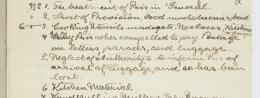 No 1. Ill treatment of Pris in General.
2. Short of Provision, Food unwholesome, bad
6 3. Cooking Utensils inadequate. No Stoves. Kitchens
4. Why Pris when compelled to pay Postage on letters, parcels, and luggage.
5. Neglect of Authority to inform Pris of arrival of luggage, and so has been lost.
6 Kitchen Material